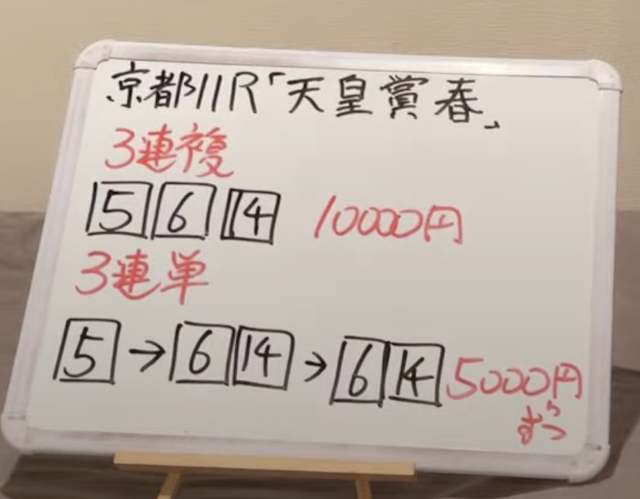 京都11R「天皇賞春」
3連複
5 6 14 10000円
3連単
5→6 14→6 14 5000円
ずつ